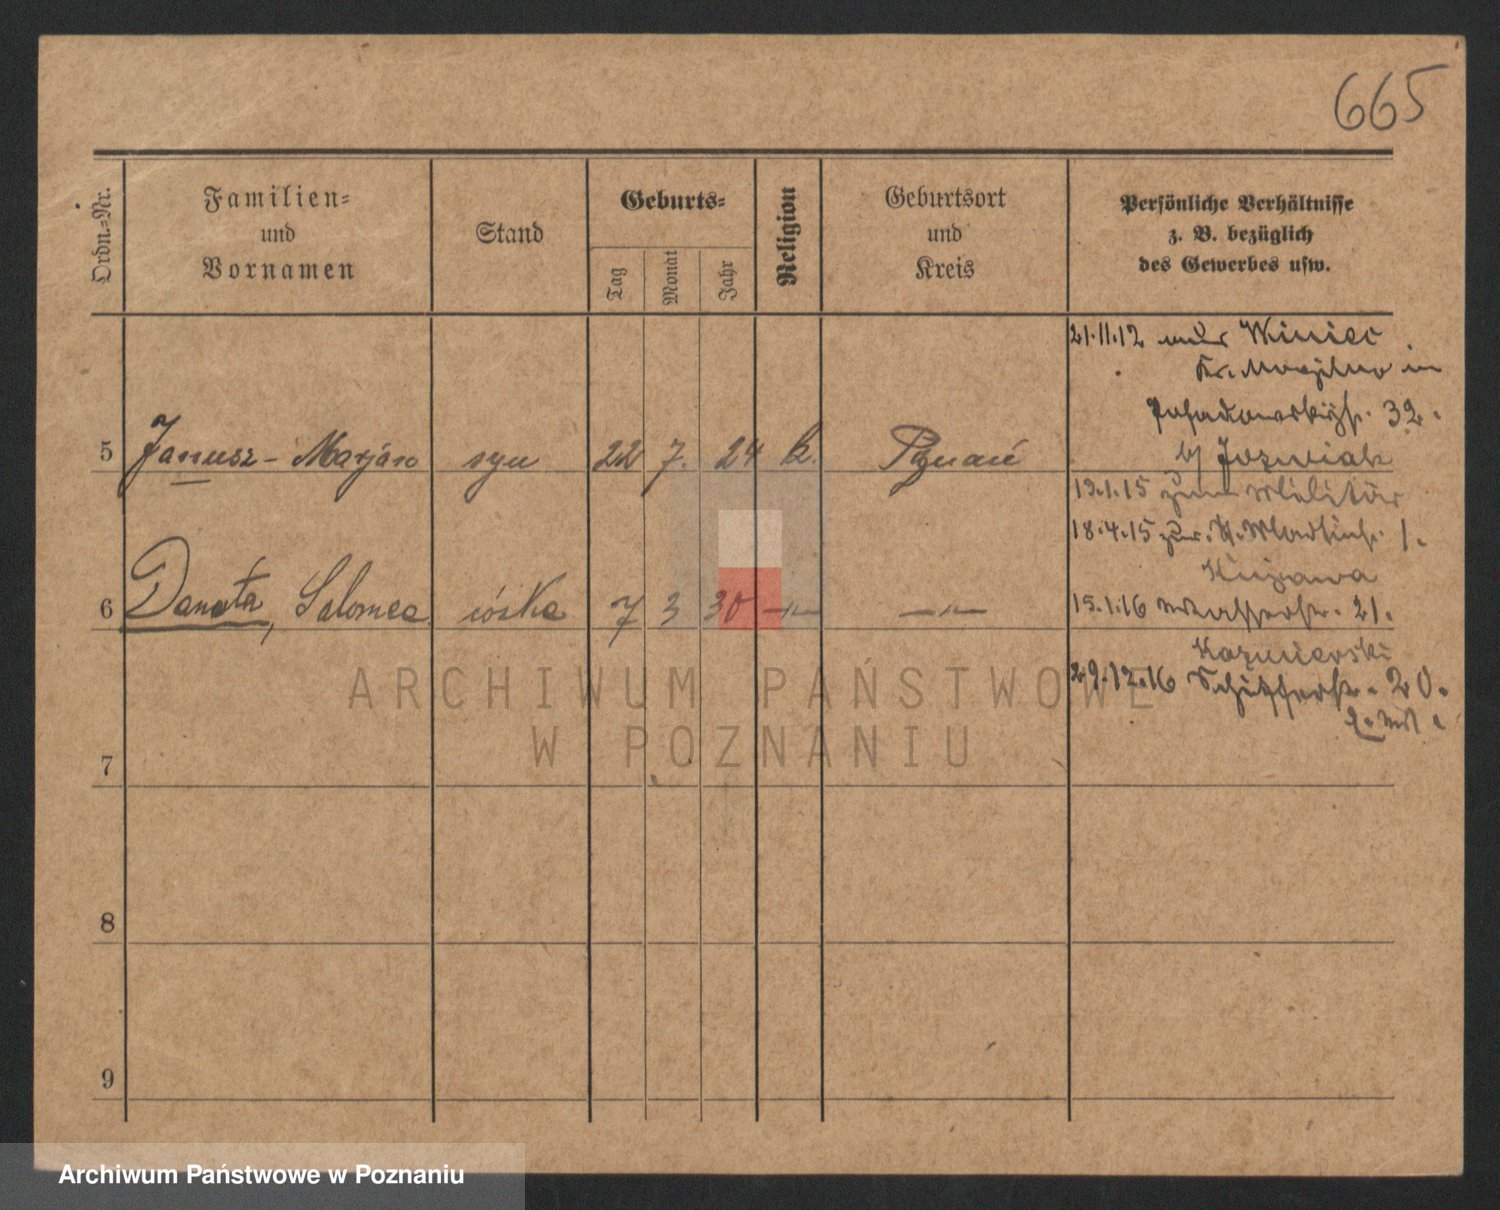 665
Ordn.-Nr.
Familien-
und
Vornamen
Stand
Geburts-
Tag
Monat
Jahr
Religion
Geburtsort
und
Kreis
Persönliche Verhältnisse
z. B. bezüglich
des Gewerbes usw.
21.11.12 Winiec
Kr. in
32.
5 Janusz - Marjan syn 22 7. 24 k. Poznań
bj Jozwiak
19.1.15 zum Militär
18.4.15 zur. 1.
Kujawa
6 Danuta, Salomea córka 7 3 30 -"- -"-
15.1.16 21.
Kazmierski
29.12.16 20.
7
8
9
ARCHIWUM PAŃSTWOWE
W POZNANIU
Archiwum Państwowe w Poznaniu